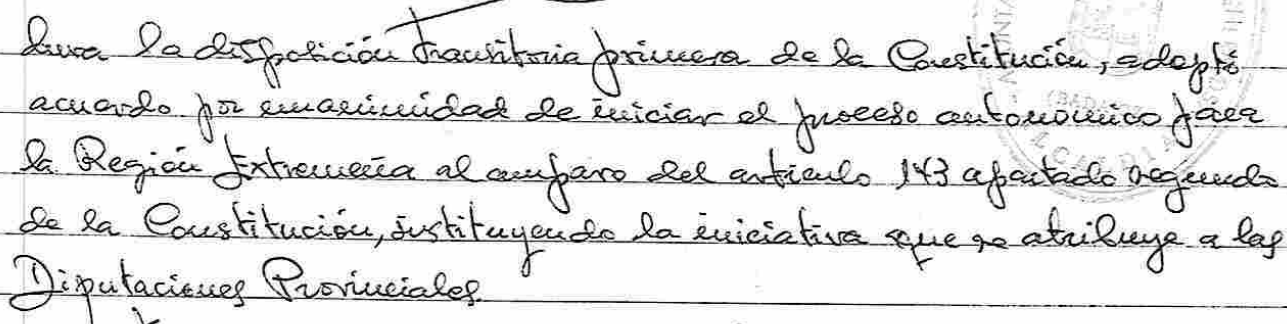 dura la disposición transitoria primera de la Constitución, adoptó
acuerdo por unanimidad de iniciar el proceso autonómico para
la Región Extremeña al amparo del artículo 143 apartado segundo
de la Constitución, sustituyendo la iniciativa que se atribuye a las
Diputaciones Provinciales